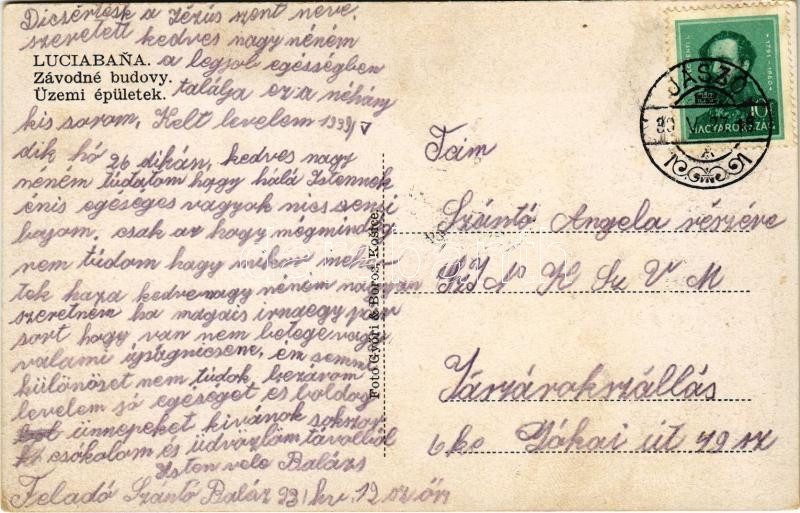 Dicsértesk a Jézus szent neve,
szeretett kedves nagy néném
LUCIABAŇA.
Závodné budovy.
Üzemi épületek.
a legjob egésségben
találja eza néhány
kis sorom, Kelt levelem 1939 V
dik hó 26 dikán, kedves nagy
néném túdatom hogy hálá Istennek
énis egeséges vagyok nics semi
bajom, csak az hogy mégmindig
nem túdom hagy mikor mehe
tek haza kedve nagy néném nagyon
szeretném ha magais irna egy pár
sort hogy van nem betege vagy
valami újságnicsene, én semmi
különöset nem túdok, bezárom
levelem jó egeséget és boldog
ünnepeket kivánok sokszor
csókolom és üdvözlöm távolból
Isten vele Balázs
Feladó Szántó Baláz 23/ kv. 12 sz őrs
Foto Győri & Boros, Košice.
JÁSZÓ
MAGYARORSZÁG
10f
Szántó Angela részére
Jászárokszállás
Jókai út 49 sz